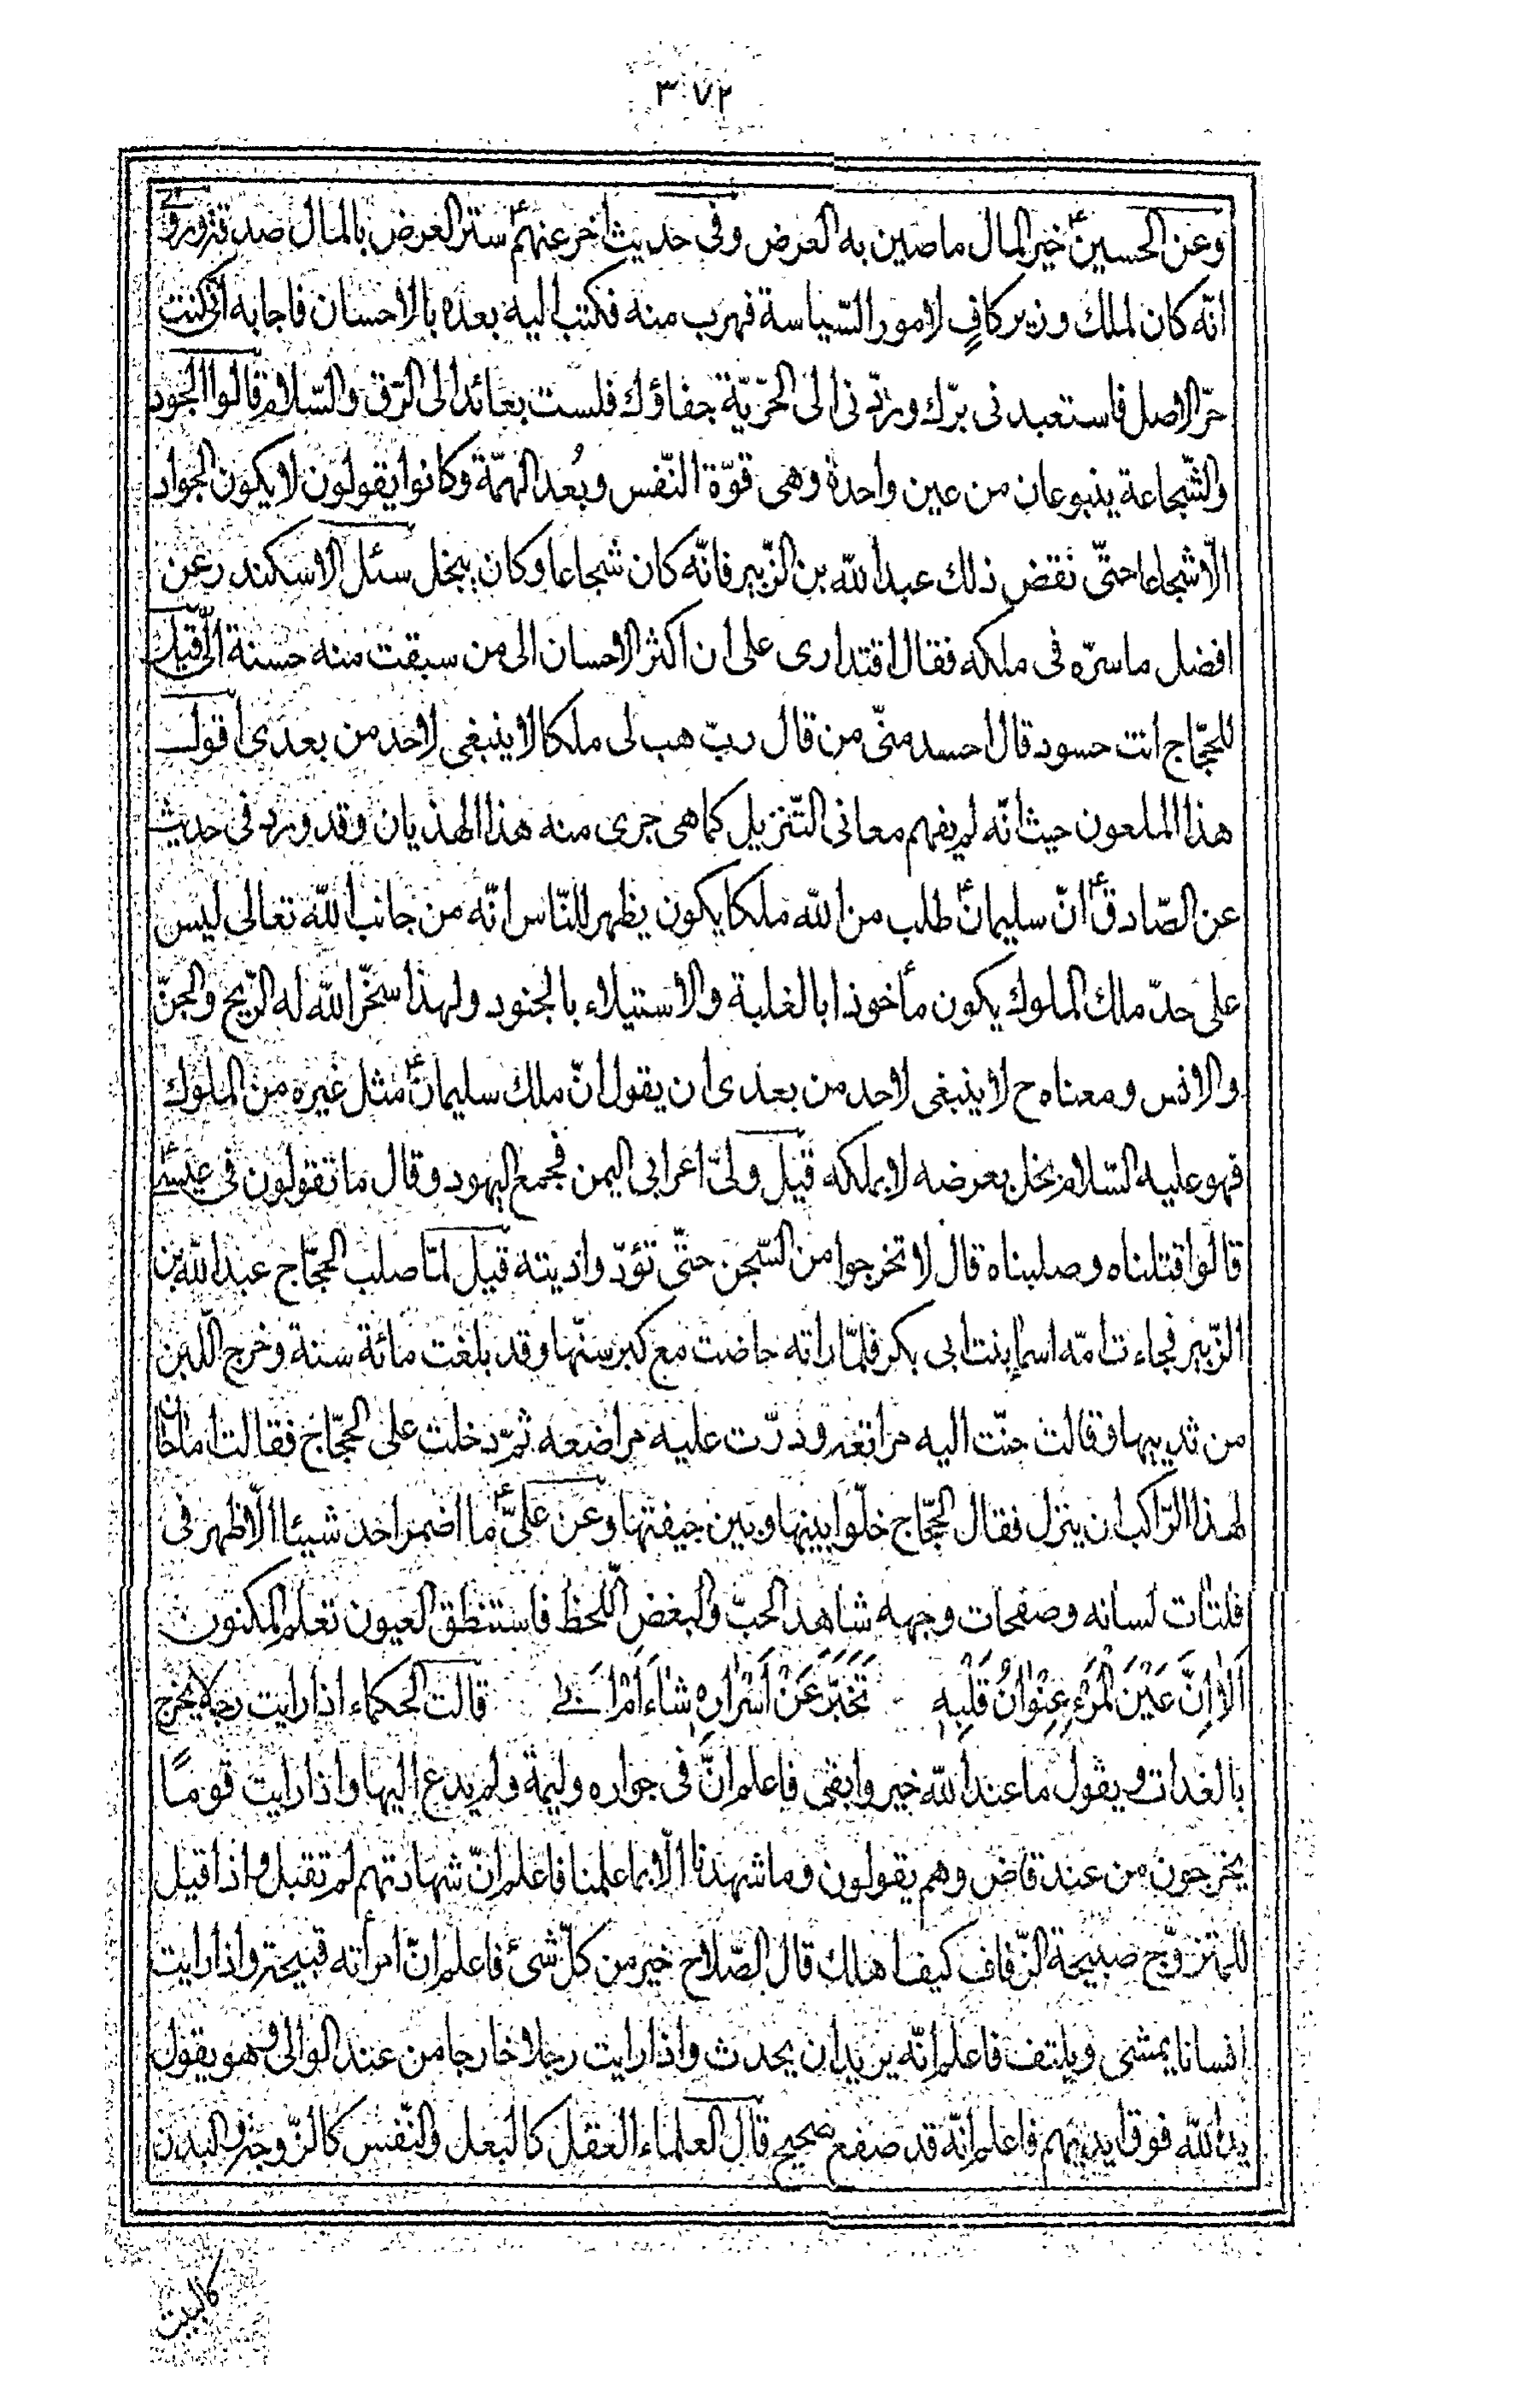 ٣٧٢
وعن الحسين ع خير المال ما صين به العرض وفى حديث اخر عنهم ع ستر العرض بالمال صدقة وروى
انّه كان لملك وزير كافٍ لامور السّياسة فهرب منه فكتب اليه بعده بالاحسان فاجابه انّى كنت
حرّ الاصل فاستعبدنى برّك وردّنى الى الحرّيّة جفاؤك فلست بعائد الى الرّق والسّلام قالوا الجود
والشّجاعة ينبوعان من عين واحدة وهى قوّة النّفس وبُعد الهمّة وكانوا يقولون لا يكون الجواد
الّا شجاعا حتّى نقض ذلك عبد الله بن الزّبير فانّه كان شجاعا وكان يبخل سئل الاسكندر عن
افضل ما سرّه فى ملكه فقال اقتدارى على ان اكثر الاحسان الى من سبقت منه حسنة الىّ قيل
للحجّاج انت حسود قال احسد منّى من قال ربّ هب لى ملكا لا ينبغى لاحد من بعدى اقول
هذا الملعون حيث انّه لم يفهم معانى التّنزيل كما هى جرى منه هذا الهذيان وقد ورد فى حديث
عن الصّادق ع انّ سليمان ع طلب من الله ملكا يكون يظهر للنّاس انّه من جانب الله تعالى ليس
على حدّ ملك الملوك يكون مأخوذا بالغلبة والاستيلاء بالجنود ولهذا سخّر الله له الرّيح والجنّ
والانس ومعناه ح لا ينبغى لاحد من بعدى ان يقول انّ ملك سليمان ع مثل غيره من الملوك
فهو عليه السّلام بخل بعرضه لا بملكه قيل ولىّ اعرابى اليمن فجمع اليهود وقال ما تقولون فى عيسى ع
قالوا قتلناه وصلبناه قال لا تخرجوا من السّجن حتّى تؤدّوا ديته قيل لمّا صلب الحجّاج عبد الله بن
الزّبير فجاءت امّه اسما بنت ابى بكر فلمّا راته حاضت مع كبر سنّها وقد بلغت مائة سنة وخرج اللّبن
من ثدييها وقالت حنّت اليه مراتعه ودرّت عليه مراضعه ثمّ دخلت على الحجّاج فقالت اما حان
لهذا الرّاكب ان ينزل فقال الحجّاج خلّوا بينها وبين جيفتها وعن علىّ ع ما اضمر احد شيئا الّا ظهر فى
فلتات لسانه وصفحات وجهه شاهد الحبّ والبغض اللّحظ فاستنطق العيون تعلم المكنون
اَلا اِنَّ عَيْنَ الْمَرْءِ عِنْوانُ قَلْبِهِ تُخَبِّرُ عَنْ اَسْرارِهِ شاءَ اَمْ اَبى قالت الحكماء اذا رايت رجلا يخرج
بالغدات ويقول ما عند الله خير وابقى فاعلم انّ فى جواره وليمة ولم يدع اليها واذا رايت قومًا
يخرجون من عند قاض وهم يقولون وما شهدنا الّا بما علمنا فاعلم انّ شهادتهم لم تقبل واذا قيل
للمتزوّج صبيحة الزّفاف كيف اهلك قال الصّلاح خير من كلّ شىء فاعلم انّ امرأته قبيحة واذا رايت
انسانا يمشى ويلتف فاعلم انّه يريد ان يحدث واذا رايت رجلا خارجا من عند الوالى وهو يقول
يد الله فوق ايديهم فاعلم انّه قد صفع صحيح قال العلماء العقل كالبعل والنّفس كالزّوجة والبدن
كالبيت